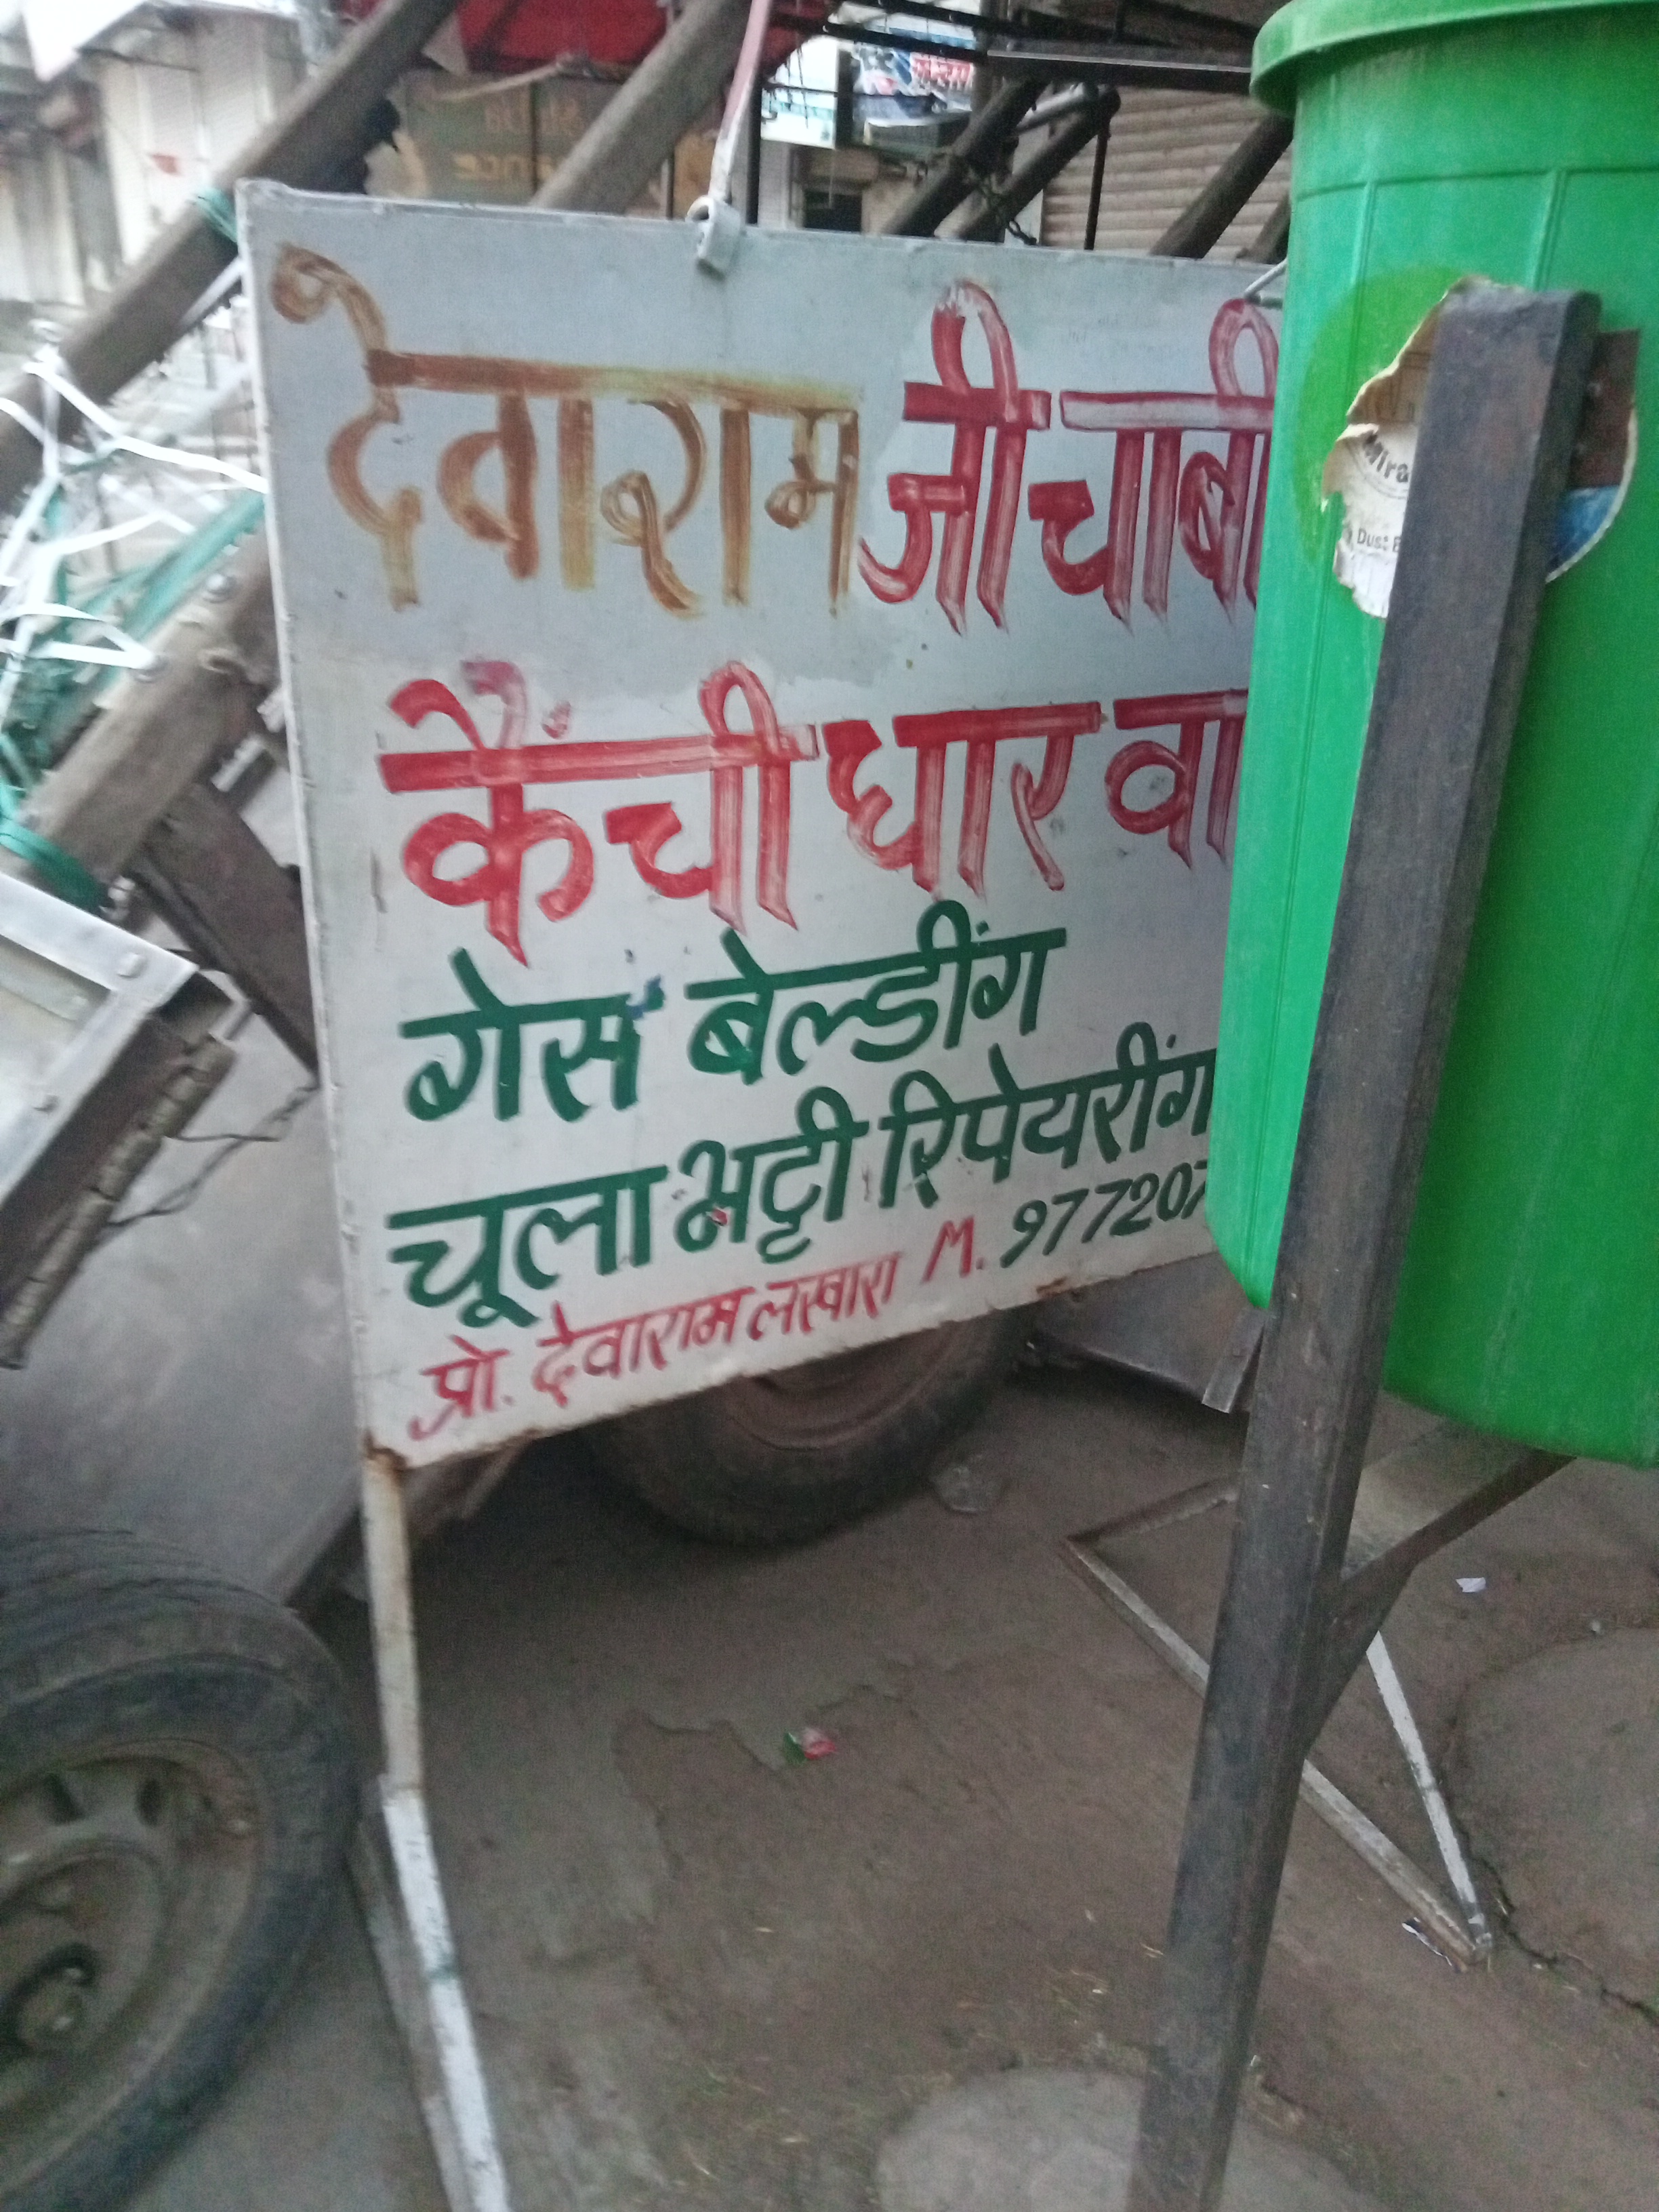 देवाराम जी चाबी
कैंची धार वा
गेस बेल्डींग
चूला भट्टी रिपेयरींग
प्रो. देवाराम लखारा M. 977207
Mira
Dust B